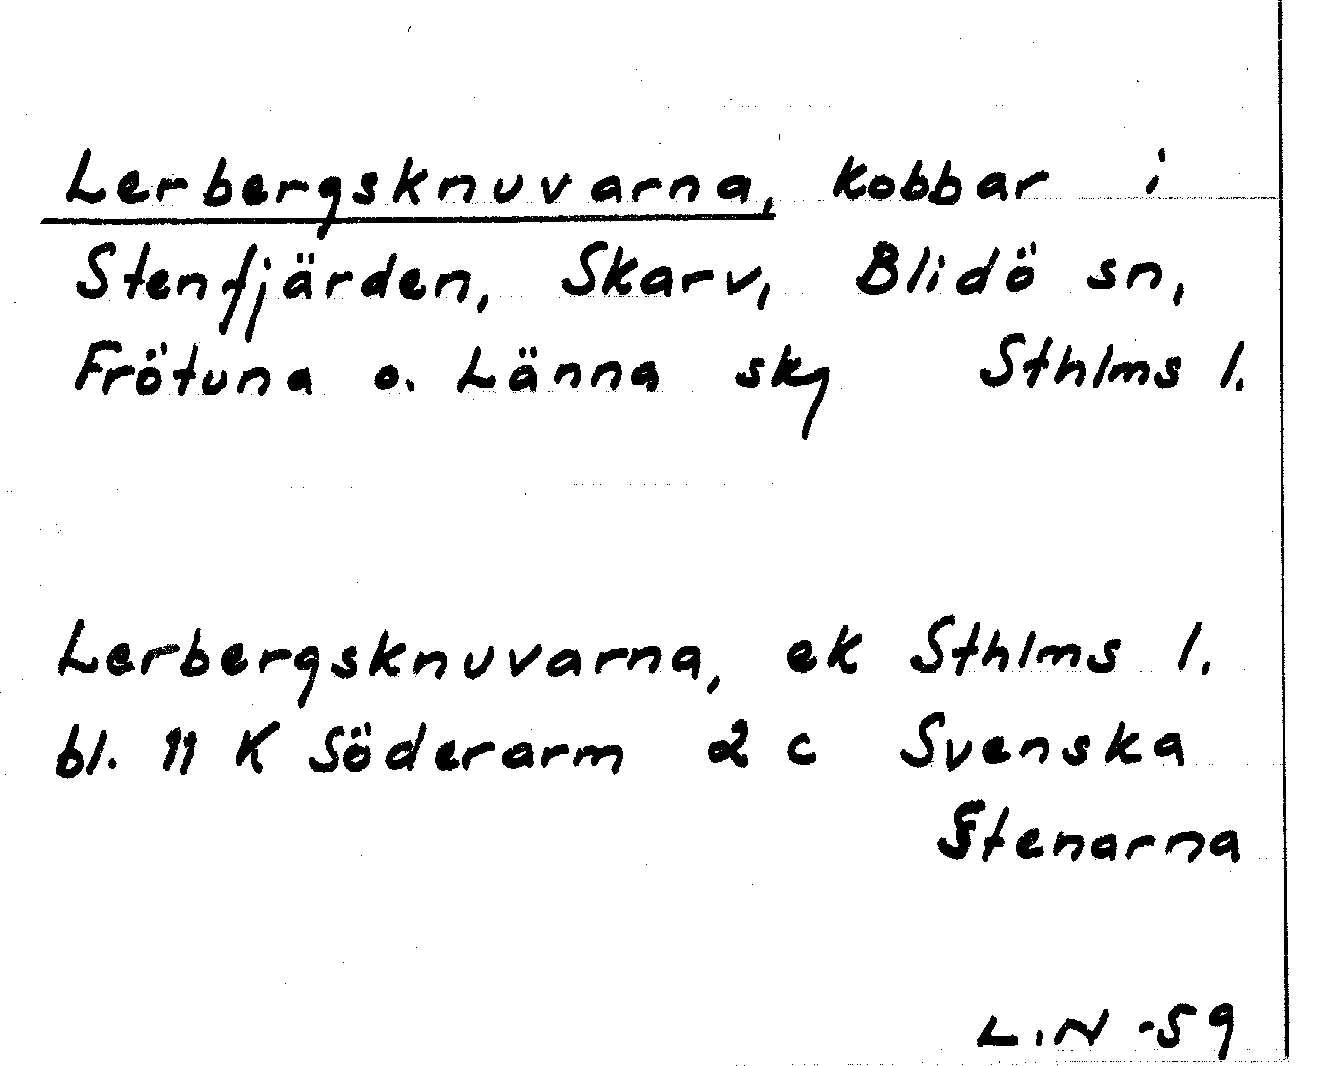 Lerbergsknuvarna, kobbar i
Stenfjärden, Skarv, Blidö sn,
Frötuna o. Länna sky Sthlms l.
Lerbergsknuvarna, ek Sthlms l.
bl. 11 K Söderarm 2 c Svenska
Stenarna
L.N -59